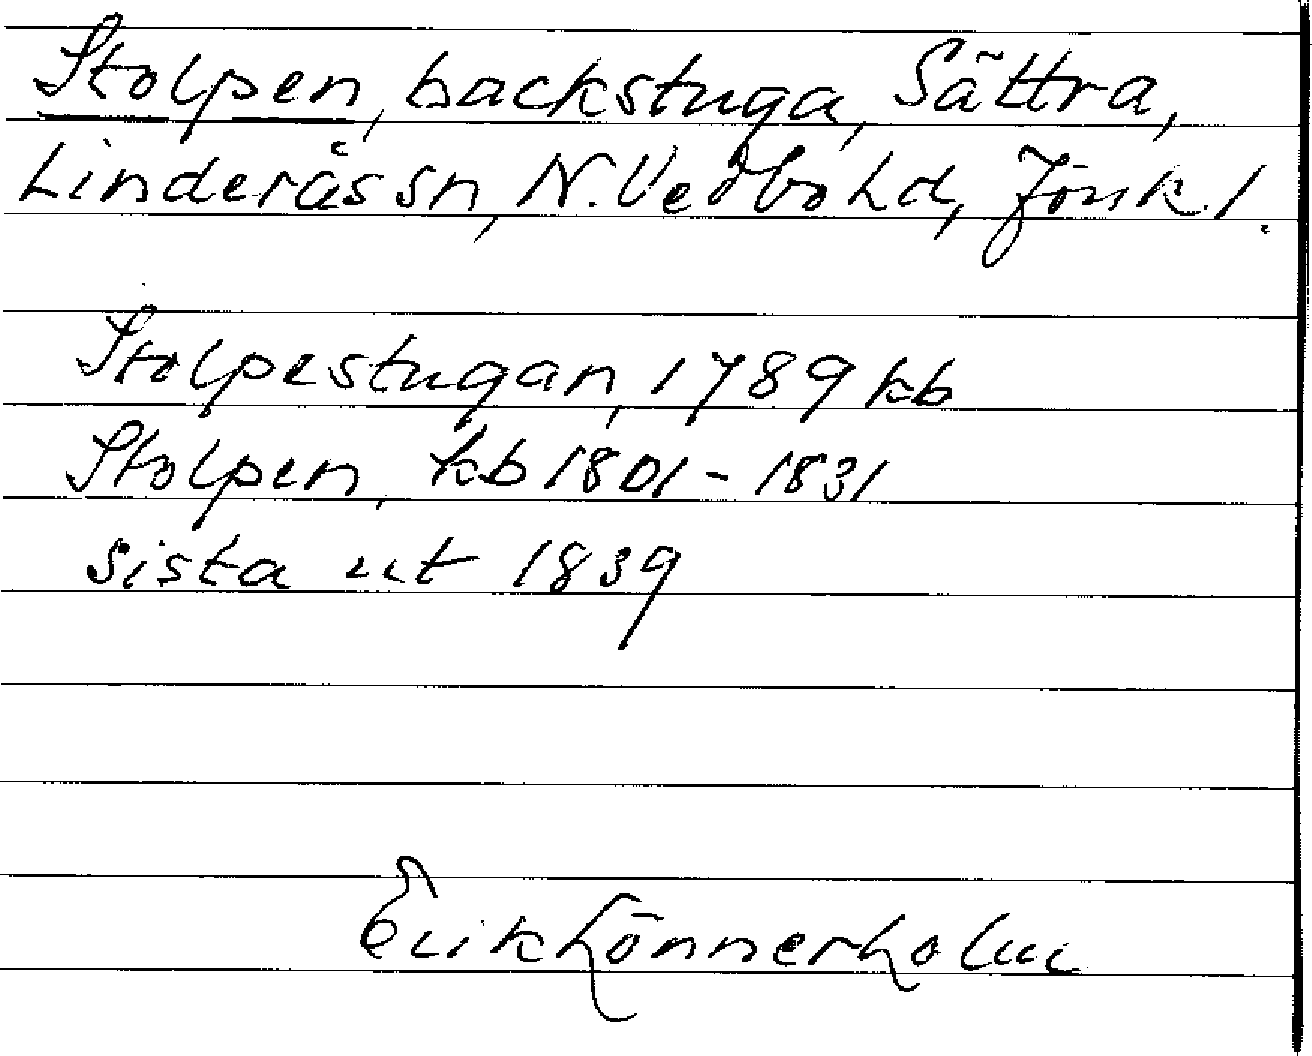 Stolpen, backstuga, Sättra,
Linderås sn, N. Vedbo hd, Jönk l.
Stolpestugan, 1789 kb
Stolpen, kb 1801 - 1831
sista ut 1839
Erik Lönnerholm